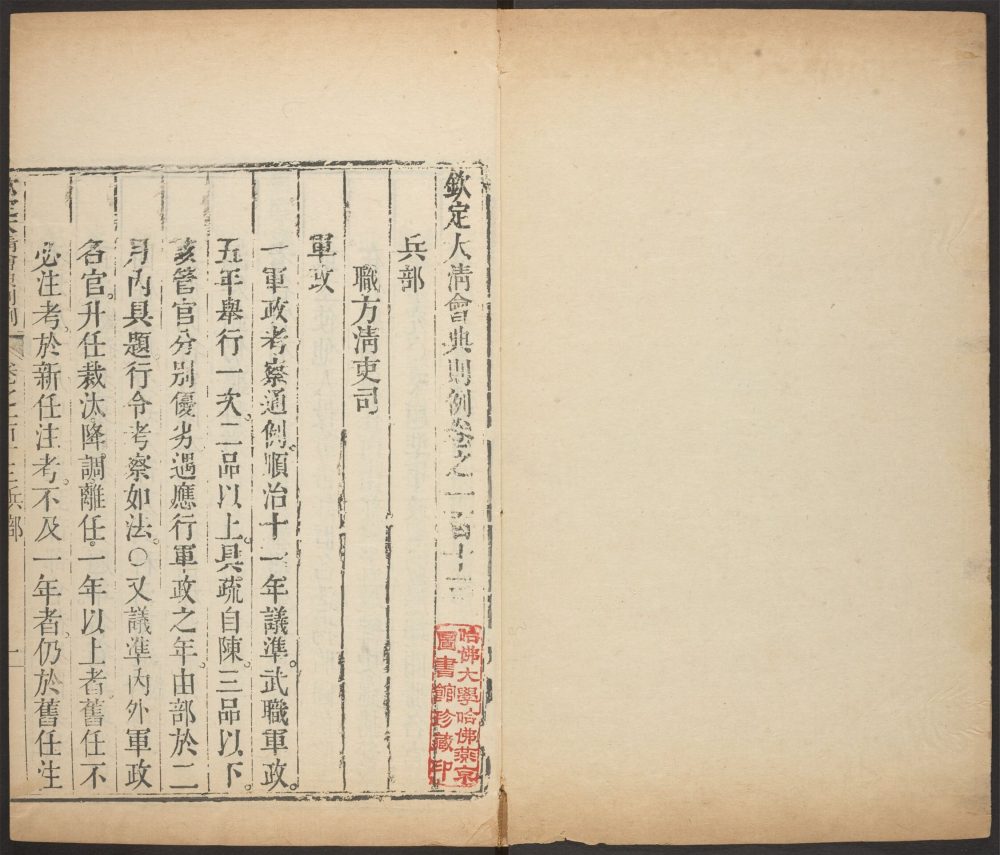 欽定大清會典則例卷之一百十三
兵部
職方清吏司
軍政
一軍政考察通例。順治十一年議準。武職軍政。
五年舉行一次。二品以上。具疏自陳。三品以下。
該管官分別優劣。遇應行軍政之年。由部於二
月內具題行令考察如法。○又議準。內外軍政
各官。升任裁汰。降調離任。一年以上者。舊任不
必注考。於新任注考。不及一年者。仍於舊任注
欽定大清會典則例 卷之一百十三兵部 一
哈佛大學哈佛燕京
圖書館珍藏印